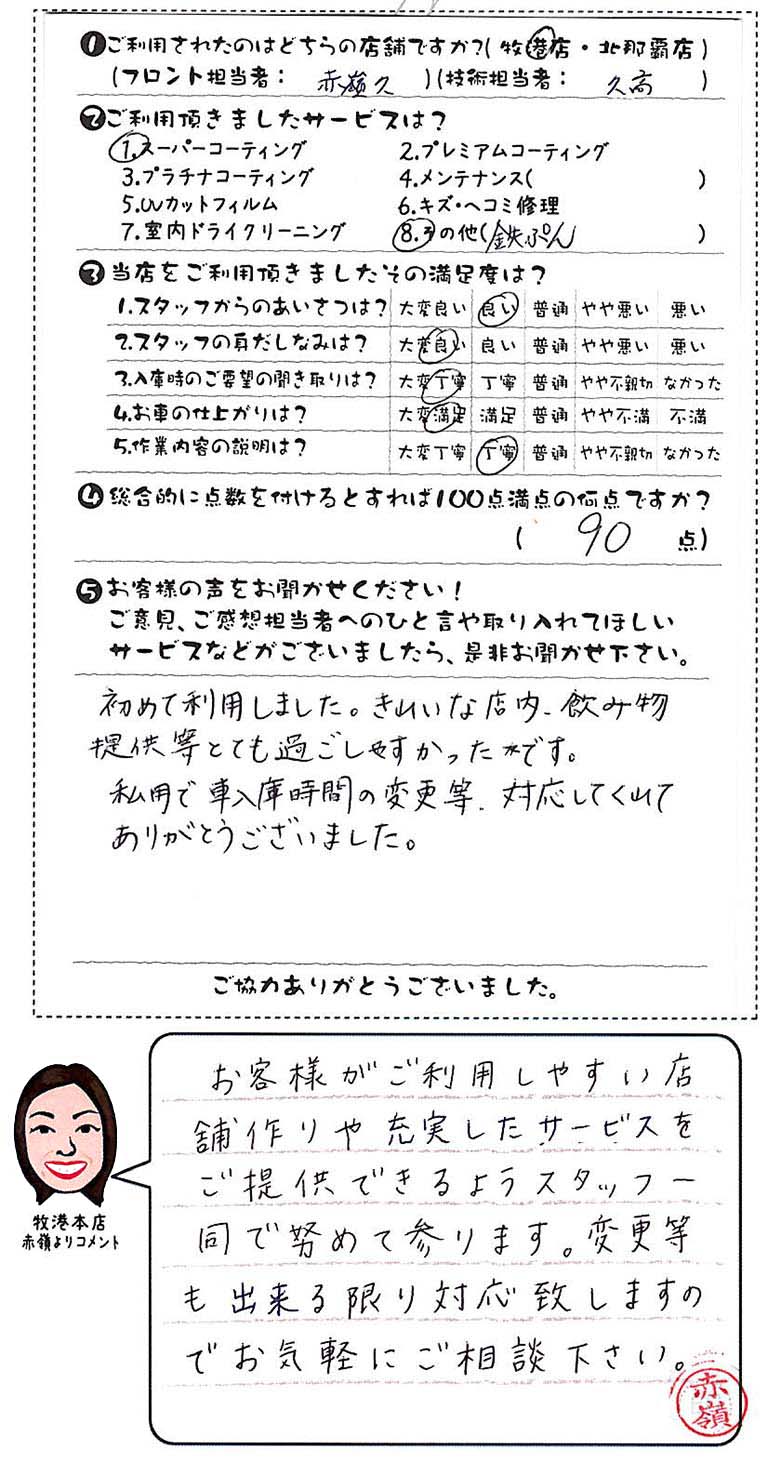 ❶ご利用されたのはどちらの店舗ですか?(牧港店・北那覇店)
(フロント担当者: 赤嶺久 )(技術担当者: 久高 )
❷ご利用頂きましたサービスは?
1.スーパーコーティング 2.プレミアムコーティング
3.プラチナコーティング 4.メンテナンス( )
5.UVカットフィルム 6.キズ・ヘコミ修理
7.室内ドライクリーニング 8.その他(鉄ぷん )
❸当店をご利用頂きましたその満足度は?
1.スタッフからのあいさつは? 大変良い 良い 普通 やや悪い 悪い
2.スタッフの身だしなみは? 大変良い 良い 普通 やや悪い 悪い
3.入庫時のご要望の聞き取りは? 大変丁寧 丁寧 普通 やや不親切 なかった
4.お車の仕上がりは? 大変満足 満足 普通 やや不満 不満
5.作業内容の説明は? 大変丁寧 丁寧 普通 やや不親切 なかった
❹総合的に点数を付けるとすれば100点満点の何点ですか?
( 90 点)
❺お客様の声をお聞かせください!
ご意見、ご感想担当者へのひと言や取り入れてほしい
サービスなどがございましたら、是非お聞かせ下さい。
初めて利用しました。きれいな店内、飲み物
提供等とても過ごしやすかったです。
私用で車入庫時間の変更等、対応してくれて
ありがとうございました。
ご協力ありがとうございました。
お客様がご利用しやすい店
舗作りや充実したサービスを
ご提供できるようスタッフ一
同で努めて参ります。変更等
も出来る限り対応致しますの
でお気軽にご相談下さい。
牧港本店
赤嶺よりコメント
赤嶺